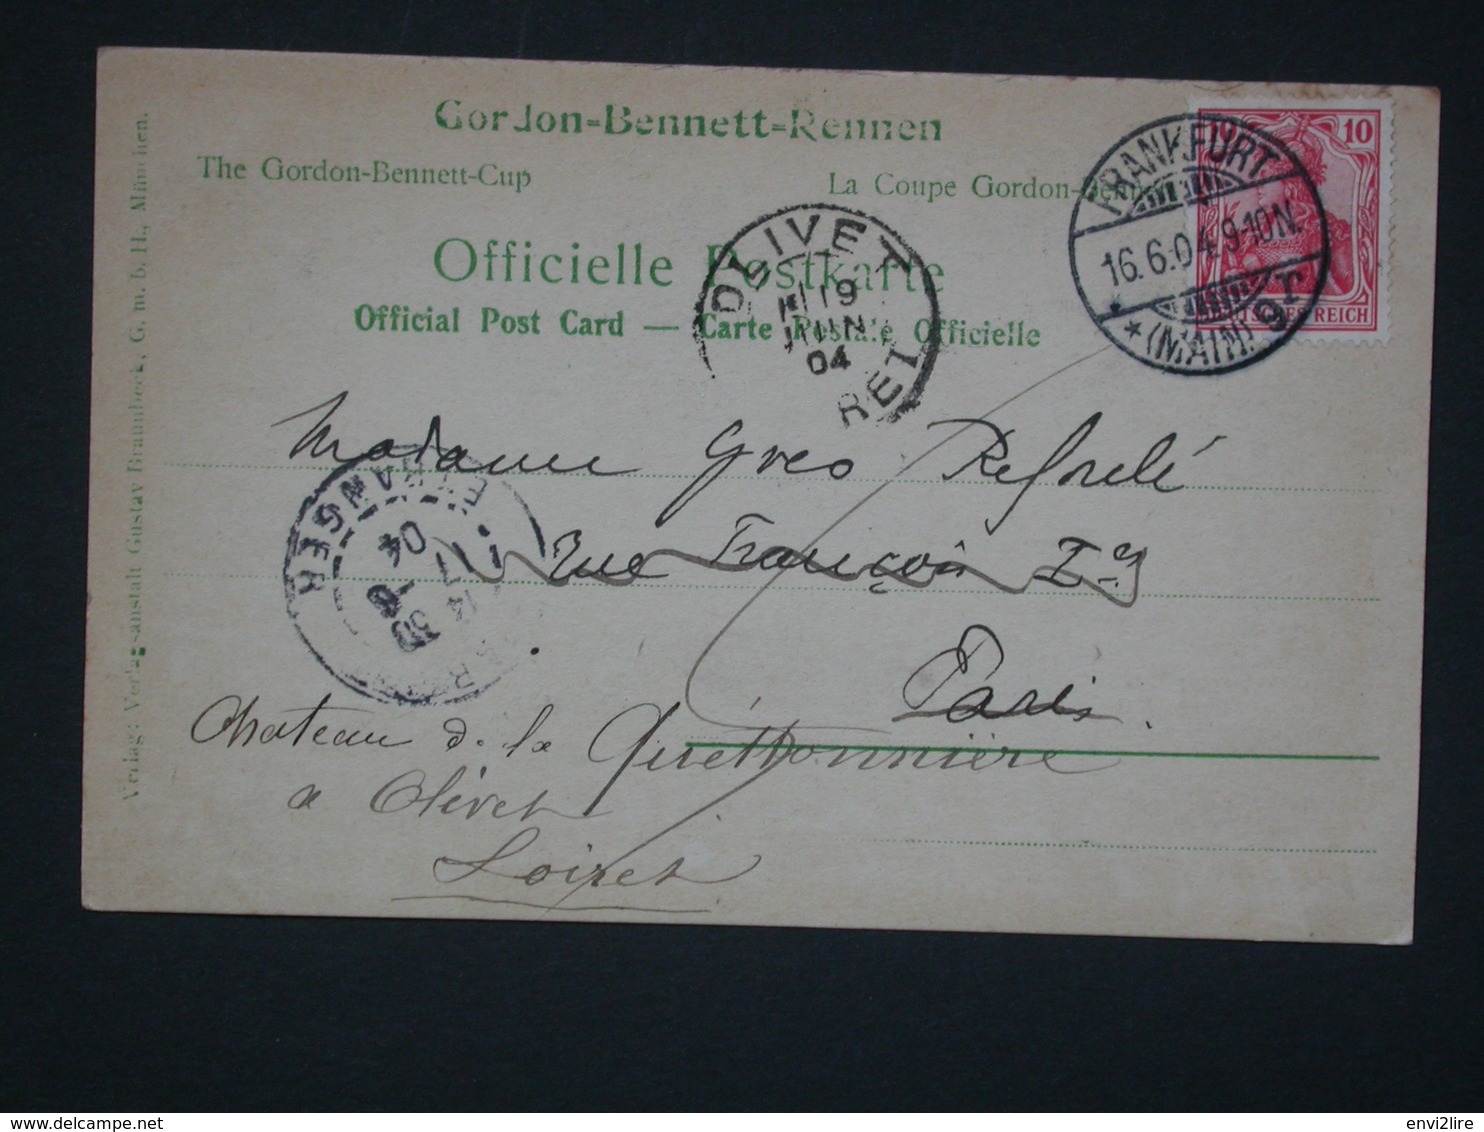 Gordon-Bennett-Rennen
The Gordon-Bennett-Cup
La Coupe Gordon-Benn
Officielle Postkarte
Official Post Card — Carte Postale Officielle
Verlag: Verlags-anstalt Gustav Braunbeck, G. m. b. H., München.
10 10
DEUTSCHES REICH
FRANKFURT
16.6.04.9-10N.
* * (MAIN) 9r
OLIVET
19
JUIN
04
RET
ETRANGER
04
Madame Yves
Rue François Ier
Paris.
Chateau de la Quétonnière
a Olivet
Loiret
envi2lire